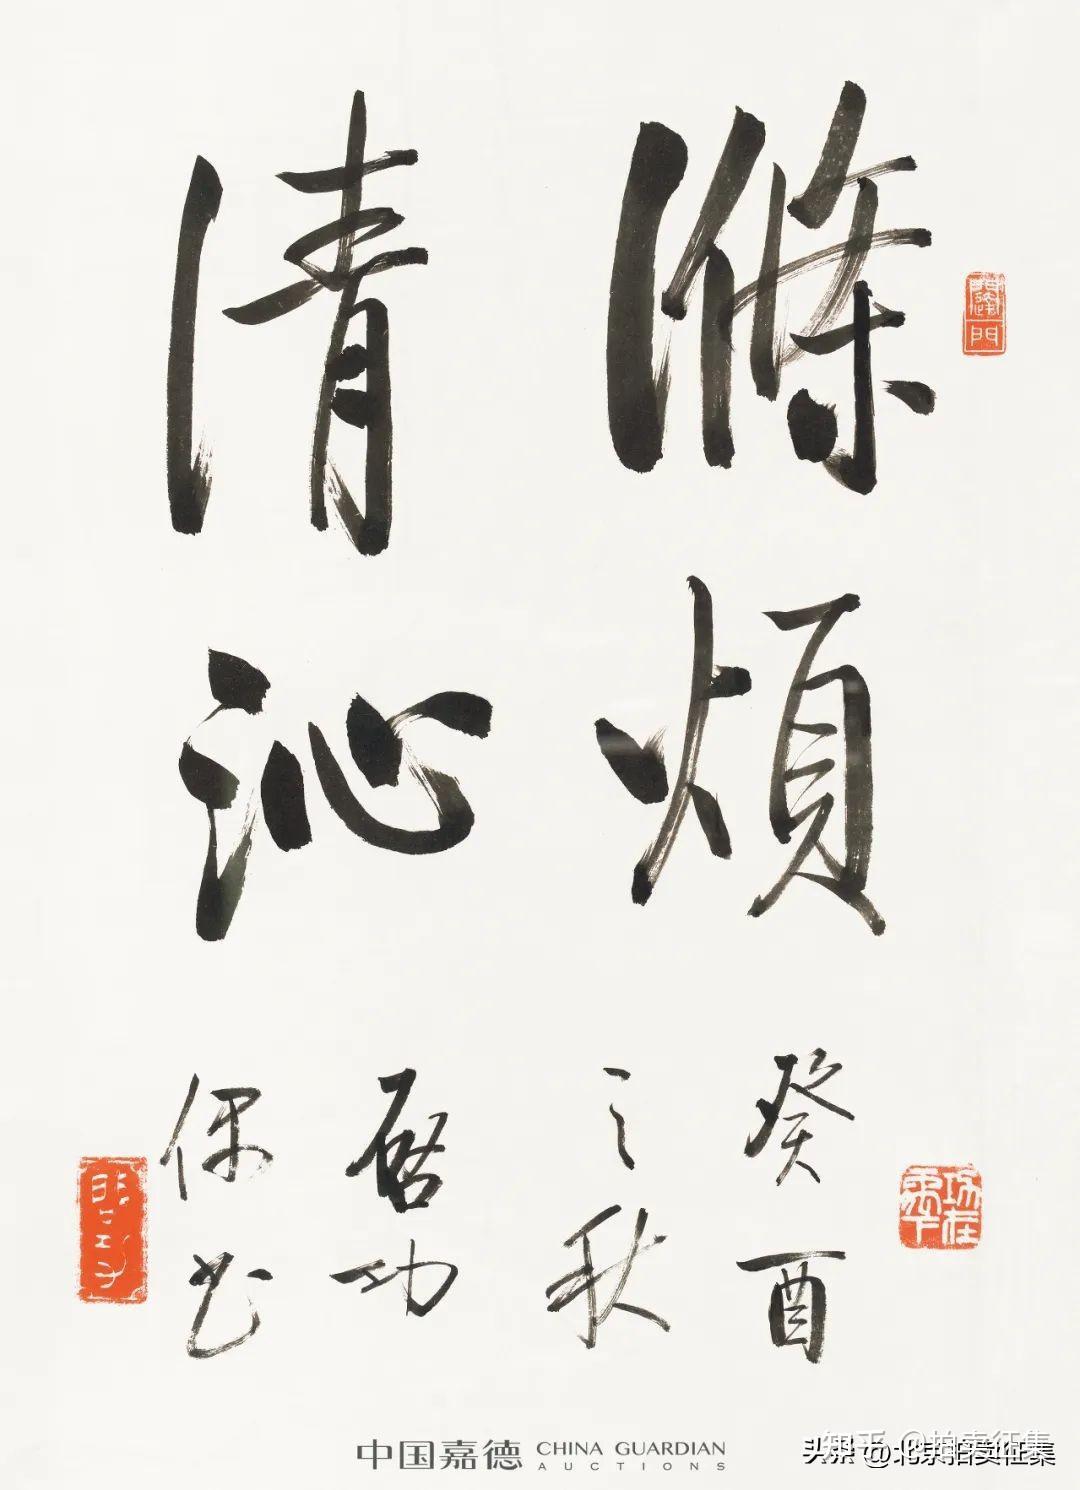 滌煩
清沁
癸酉
之秋
啓功
偶书
中国嘉德 CHINA GUARDIAN
AUCTIONS
知乎 @拍卖征集
头条 @北京拍卖征集